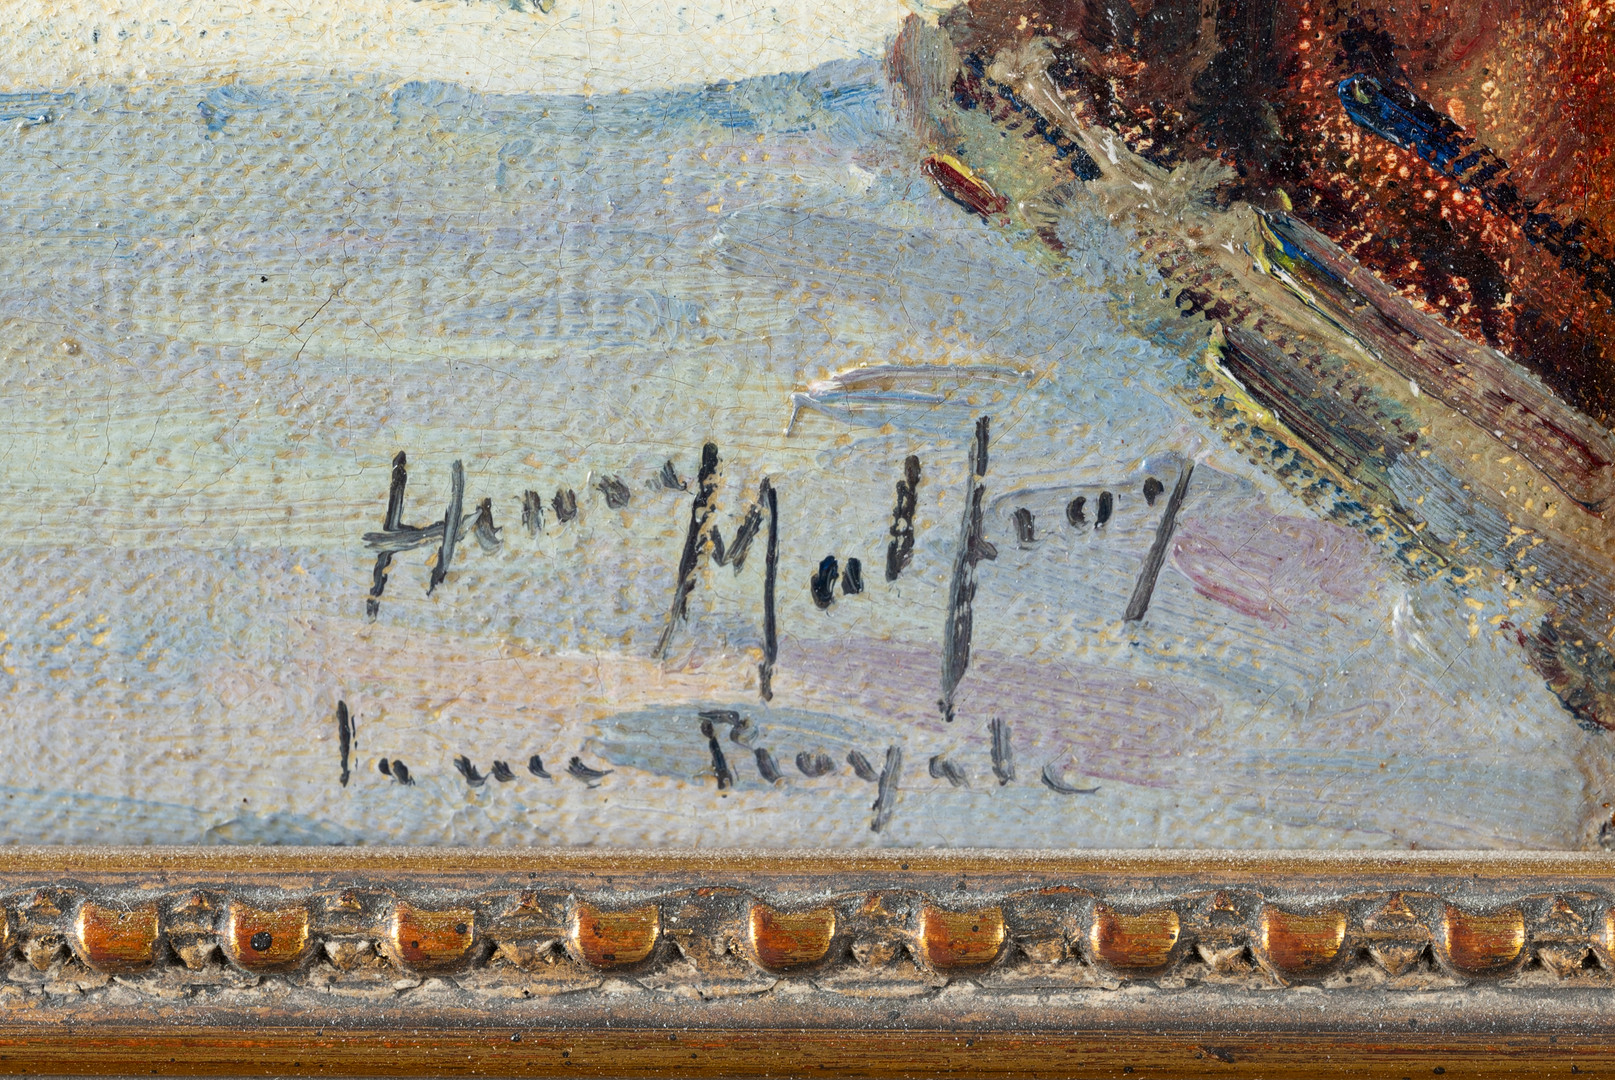 Henri Malfroy
la rue Royale